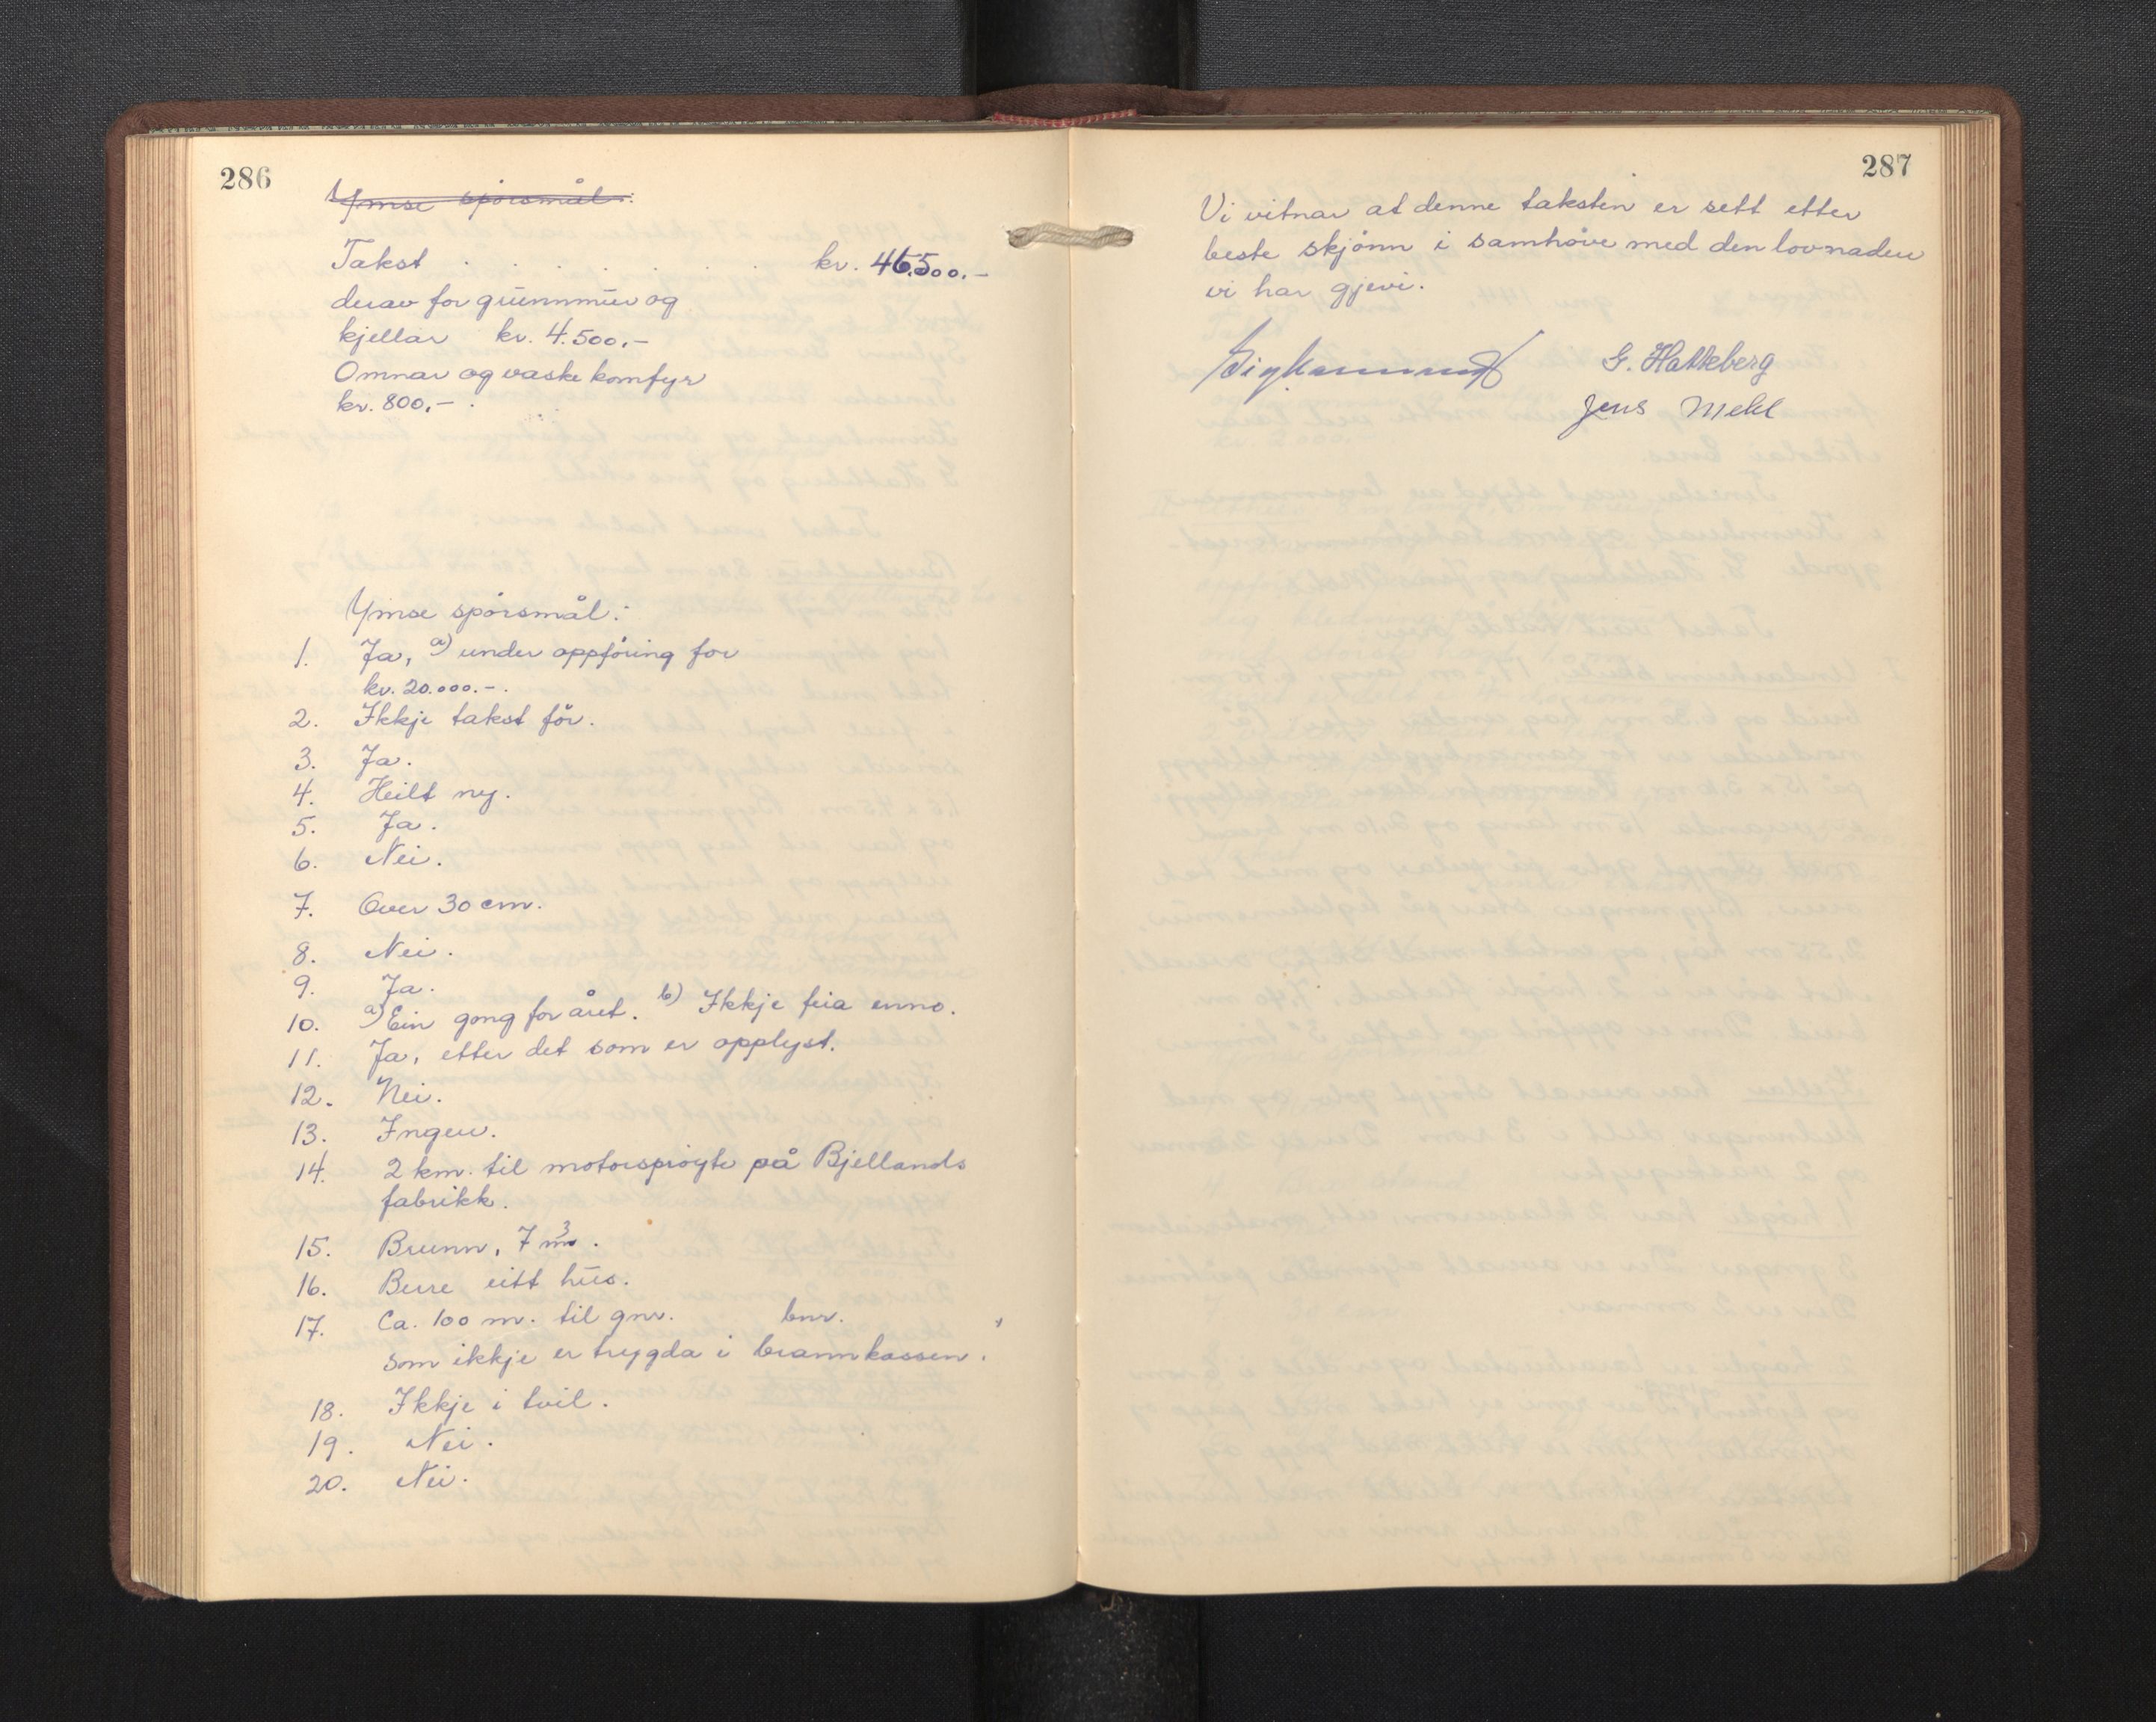 286
Ymse spørsmål:
Takst . . . . . . kr. 46.500.-
derav for grunnmur og
kjellar kr. 4.500.-
Omnar og vaskekomfyr
kr. 800.-.
Ymse spørsmål:
1. Ja, a) under oppføring for
kr. 20.000.-.
2. Ikkje takst før.
3. Ja.
4. Heilt ny.
5. Ja.
6. Nei.
7. Over 30 cm.
8. Nei.
9. Ja.
10. a) Ein gong for året. b) Ikkje feia enno.
11. Ja, etter det som er opplyst.
12. Nei.
13. Ingen.
14. 2 km. til motorsprøyte på Bjellands
fabrikk.
15. Brunn, 7 m³.
16. Berre eitt hus.
17. Ca. 100 m. til gnr. bnr. ,
som ikkje er trygda i brannkassen.
18. Ikkje i tvil.
19. Nei.
20. Nei.
287
Vi vitnar at denne taksten er sett etter
beste skjønn i samhøve med den lovnaden
vi har gjevi.
G. Hatteberg
Jens Mehl